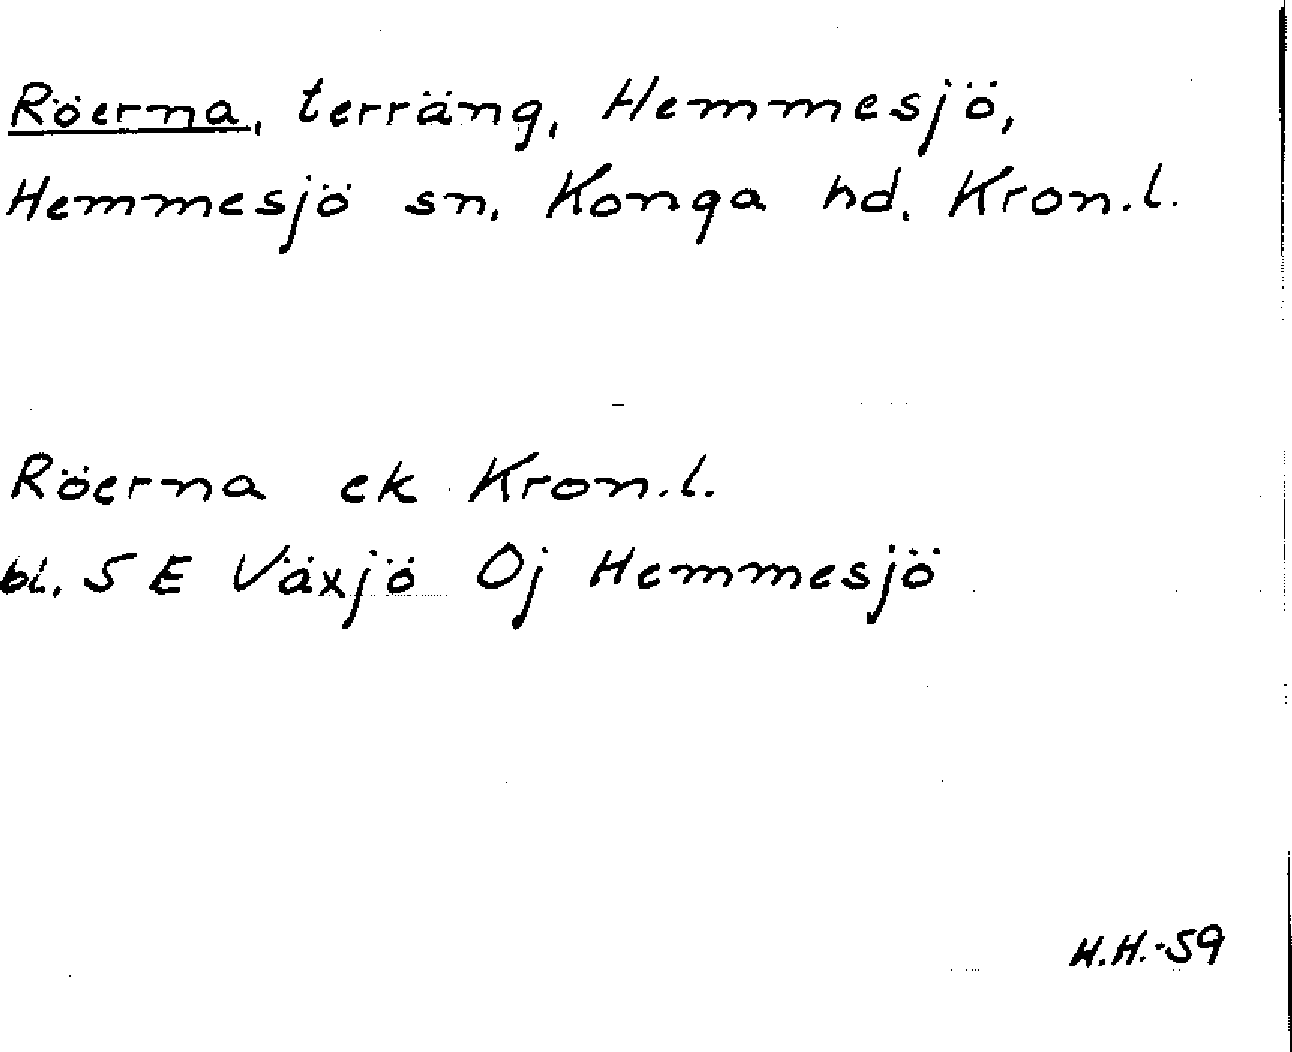 Röerna, terräng, Hemmesjö,
Hemmesjö sn. Konga hd. Kron.l.
Röerna ek Kron.l.
bl. 5 E Växjö Oj Hemmesjö
H.H.-59